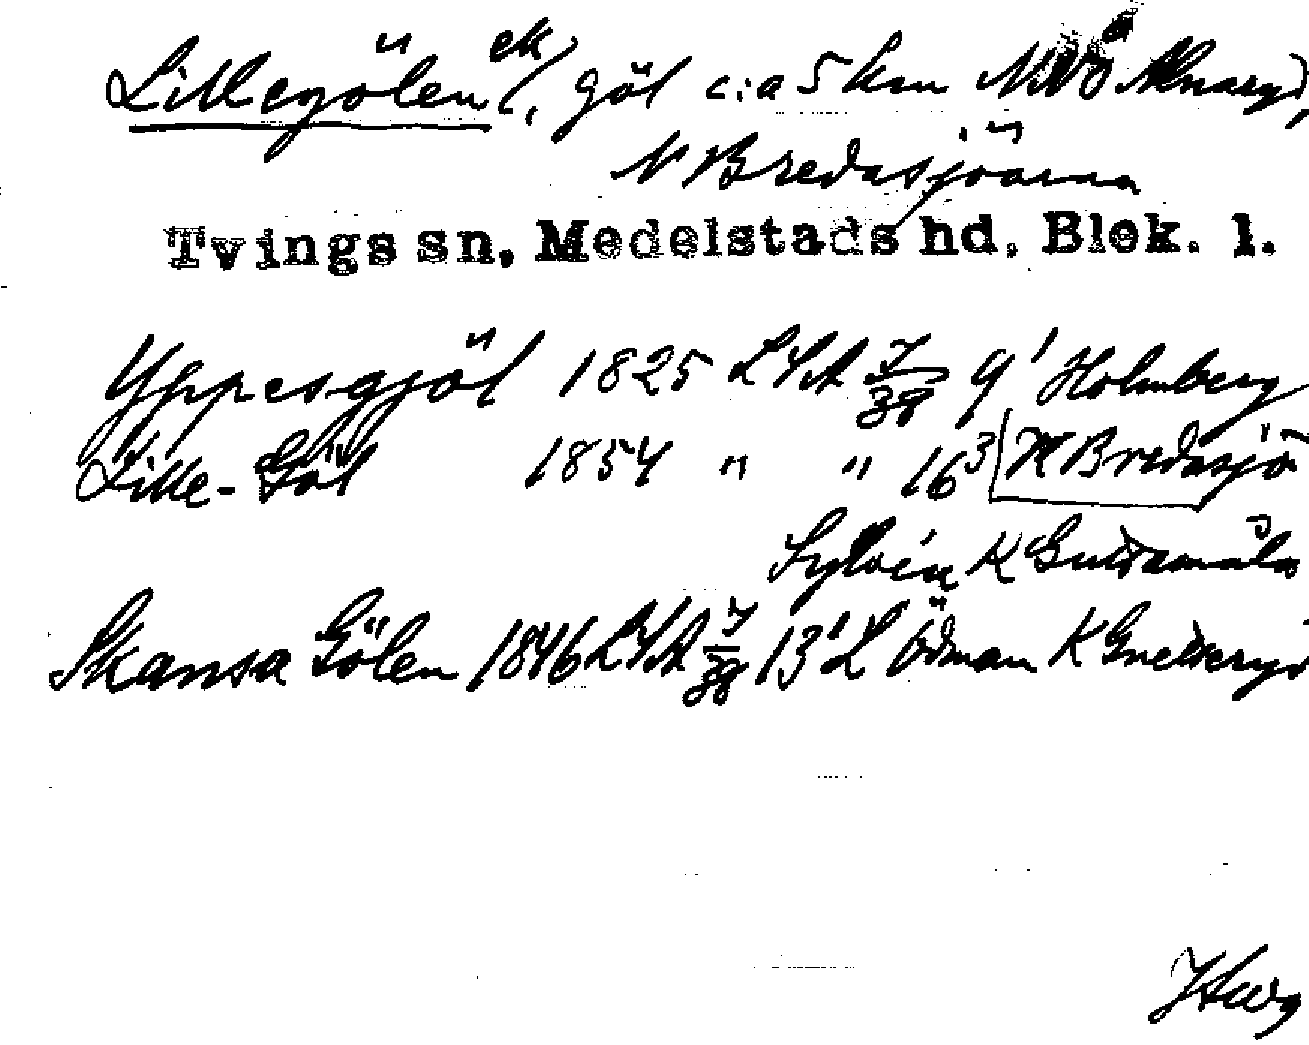 Lillegölen (ek), göl c:a 5 km NV Alnaryd,
N Bredasjöarna
Tvings sn, Medelstads hd, Blek. l.
Yppesgjöl 1825 LSA 7/38 9¹ Holmberg
Lille-Göl 1854 " " 16³ N Bredasjö
Sylvin K
Skansa Gölen 1846 LSA 7/38 13¹ L Ödman K Gnetteryd